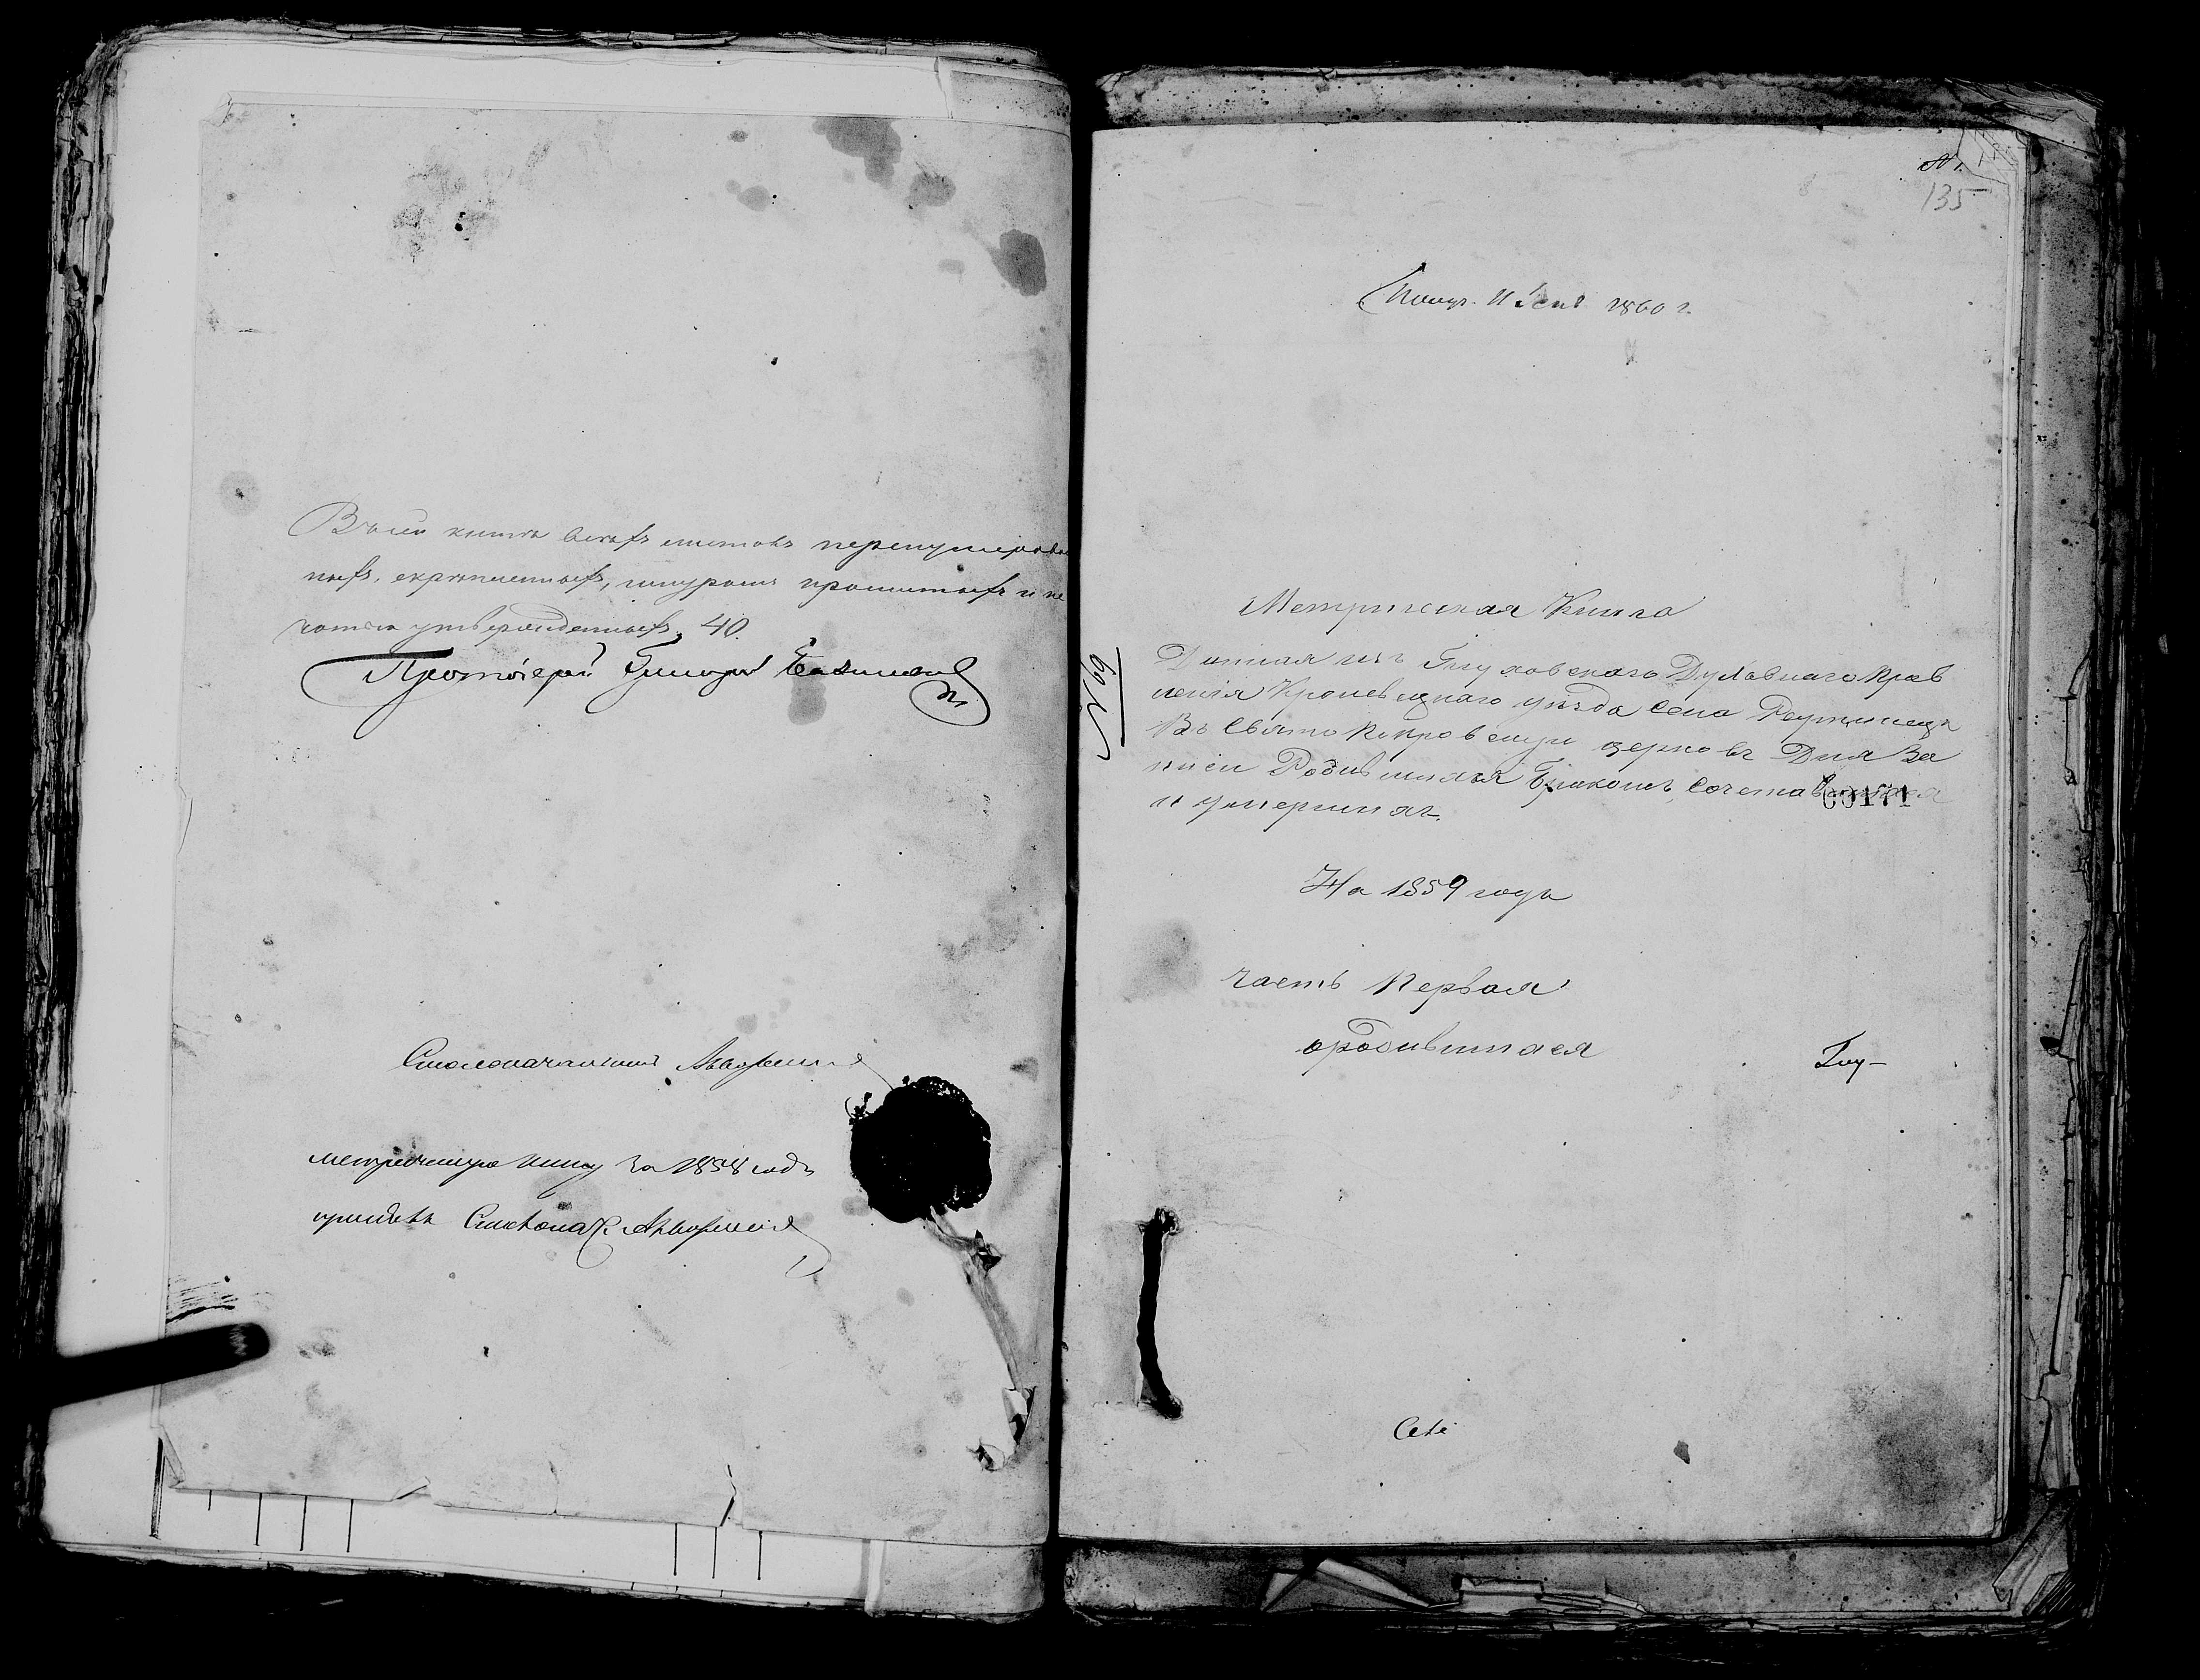 Въ сей книгѣ всехъ листовъ перенумерован
ныхъ, скрѣпленныхъ, шнуромъ прошитыхъ и пе
чатью утвержденныхъ, 40.
Протоіерей Григорій
Столоначальникъ
метрическую книгу за 1858 годъ
принялъ Столонач.
№ 1.
135
Получ. 11 Генв 1860 г.
Метрическая Книга
Данная изъ Глуховского Духовнаго Прав
ленія Кролевецкаго уѣзда села Реутинецъ
Въ Свято Покровскую церковь Для За
писи Родившихся Бракомъ Сочетавшихся
и умершихъ.
00171
№ 69
На 1859 годъ
часть Первая
ородившихся
Глу-
Сей